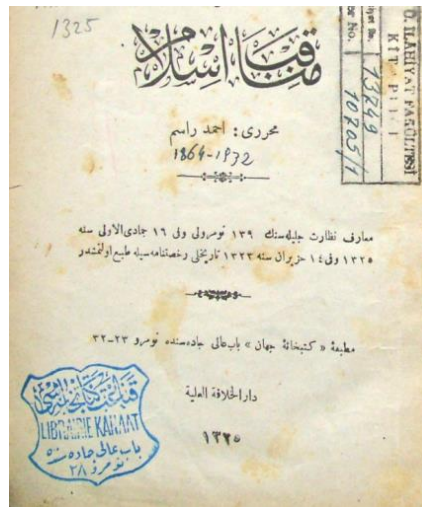 1325
O. İLAHİYAT FAKÜLTESİ
KİTAP
No.
13249
No.
10205/1
مناقب اسلام
محرری : احمد راسم
1864-1932
معارف نظارت جلیله‌سنك ١٣٩ نومرولی ولی ١٦ جمادی‌الاولی سنه
١٣٢٥ وفی ١٤ حزیران سنه ١٣٢٣ تاریخلی رخصتنامه‌سیله طبع اولنمشدر
مطبعهٔ « كتبخانهٔ جهان » باب‌عالی جاده‌سنده نومرو ٢٣-٣٢
دار الخلافة العلية
١٣٢٥
قناعت كتابخانه‌سی
LIBRAIRIE KANAAT
باب عالی جاده‌سنده
نومرو ٢٨